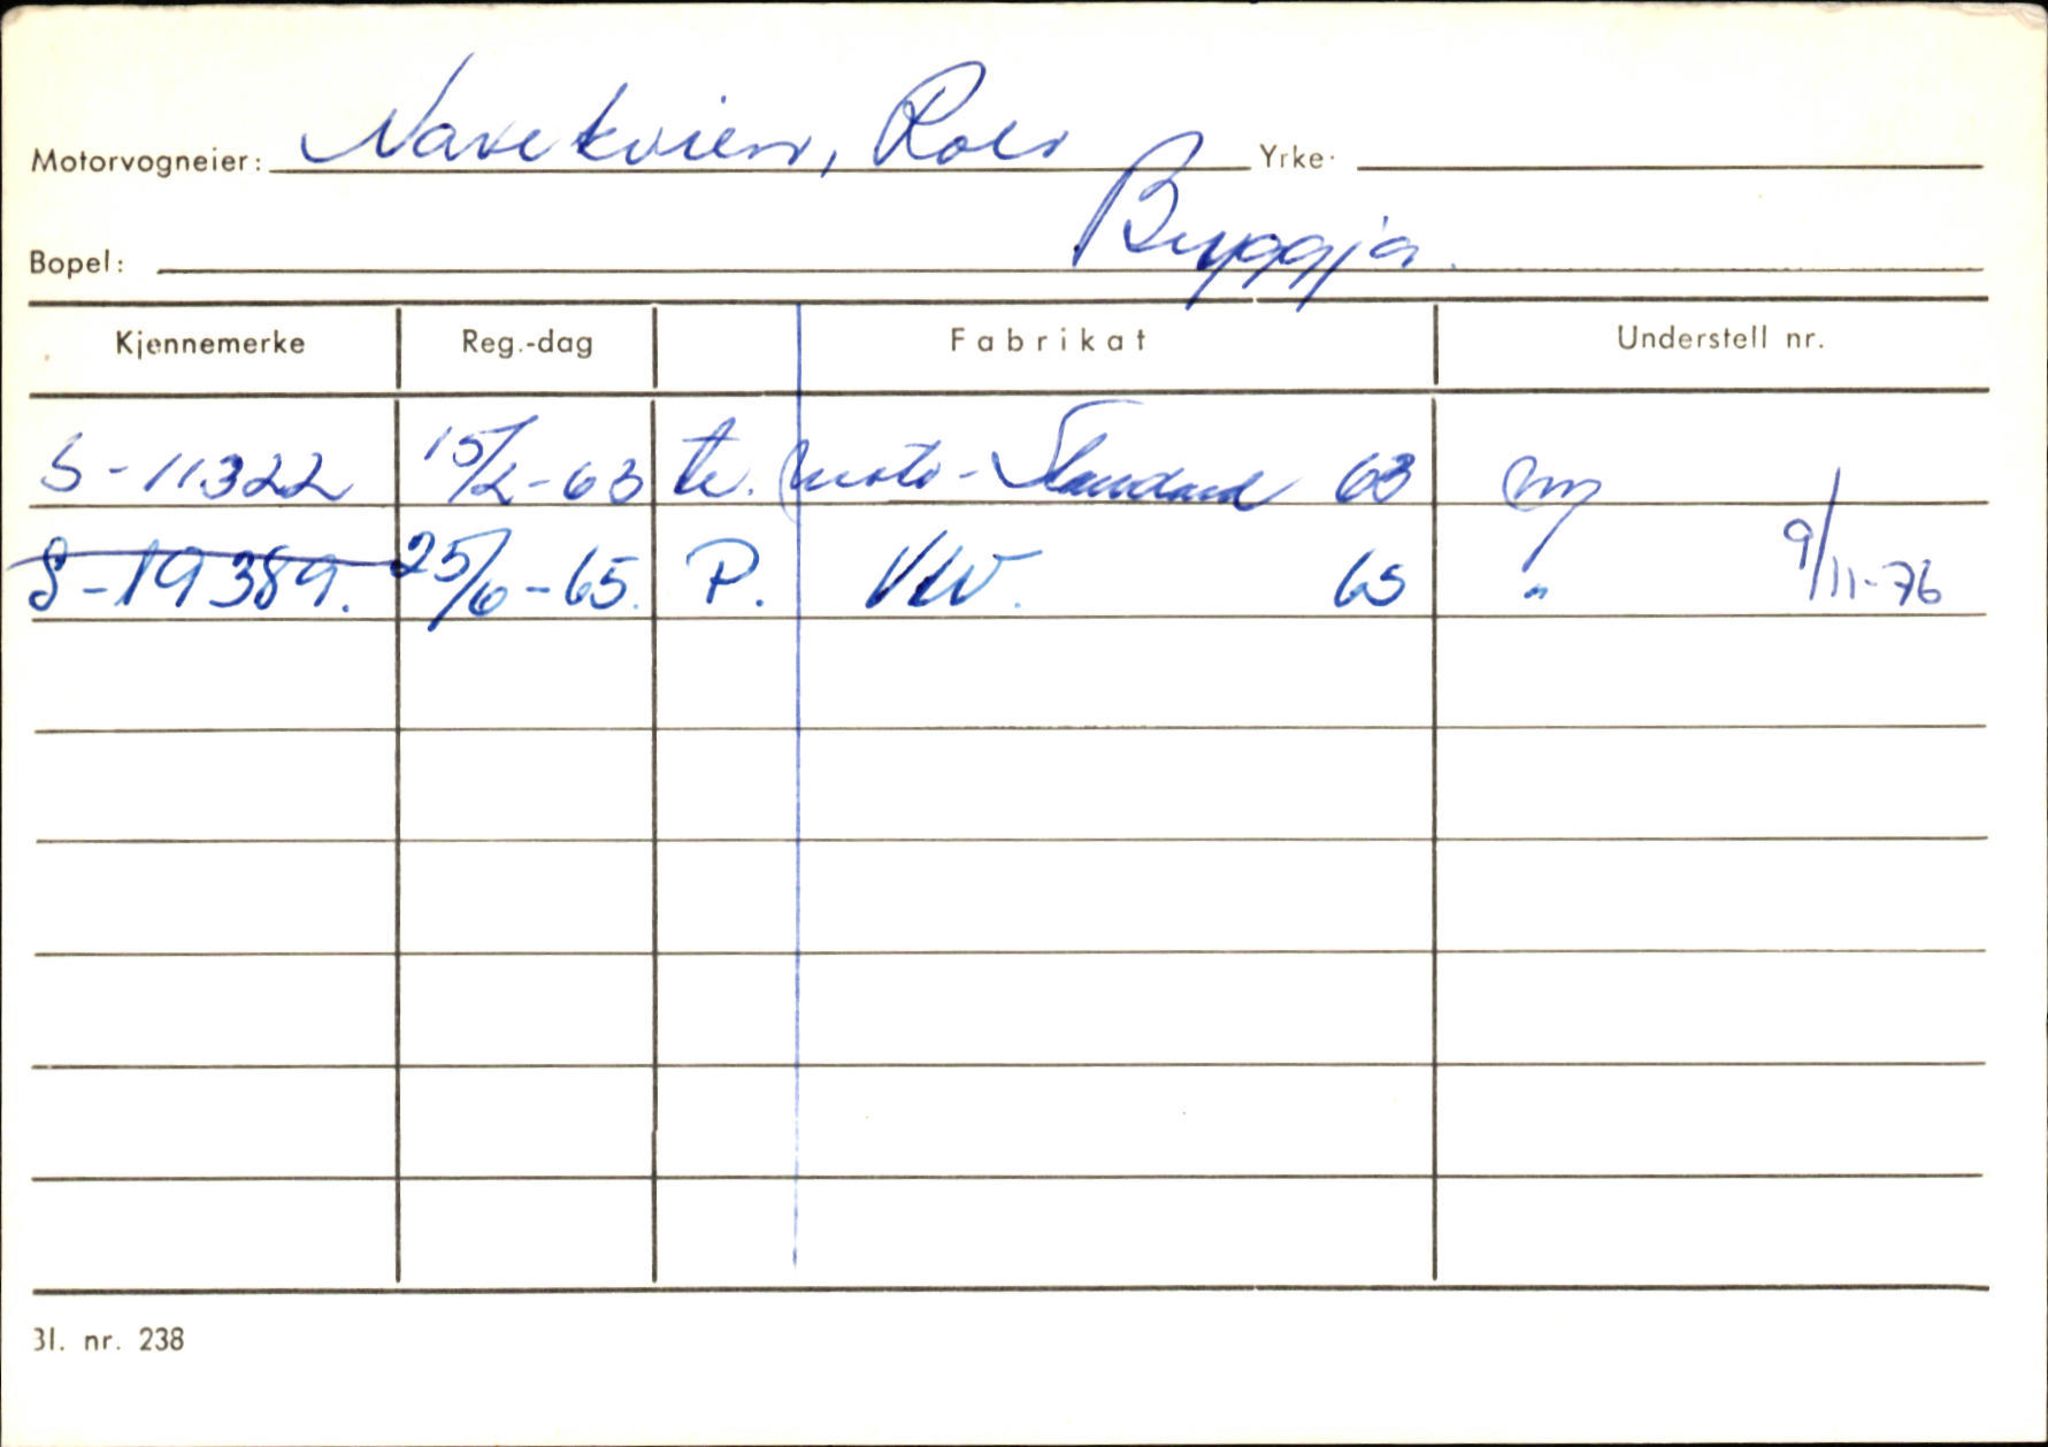 Motorvogneier: Navekvien, Rolv Yrke.
Bopel: Bryggja.
Kjennemerke Reg.-dag Fabrikat Understell nr.
S-11322 15/2-63 tr. moto-Standard 63 ny
S-19389. 25/6-65. P. VW. 65 " 9/11-76
Bl. nr. 238